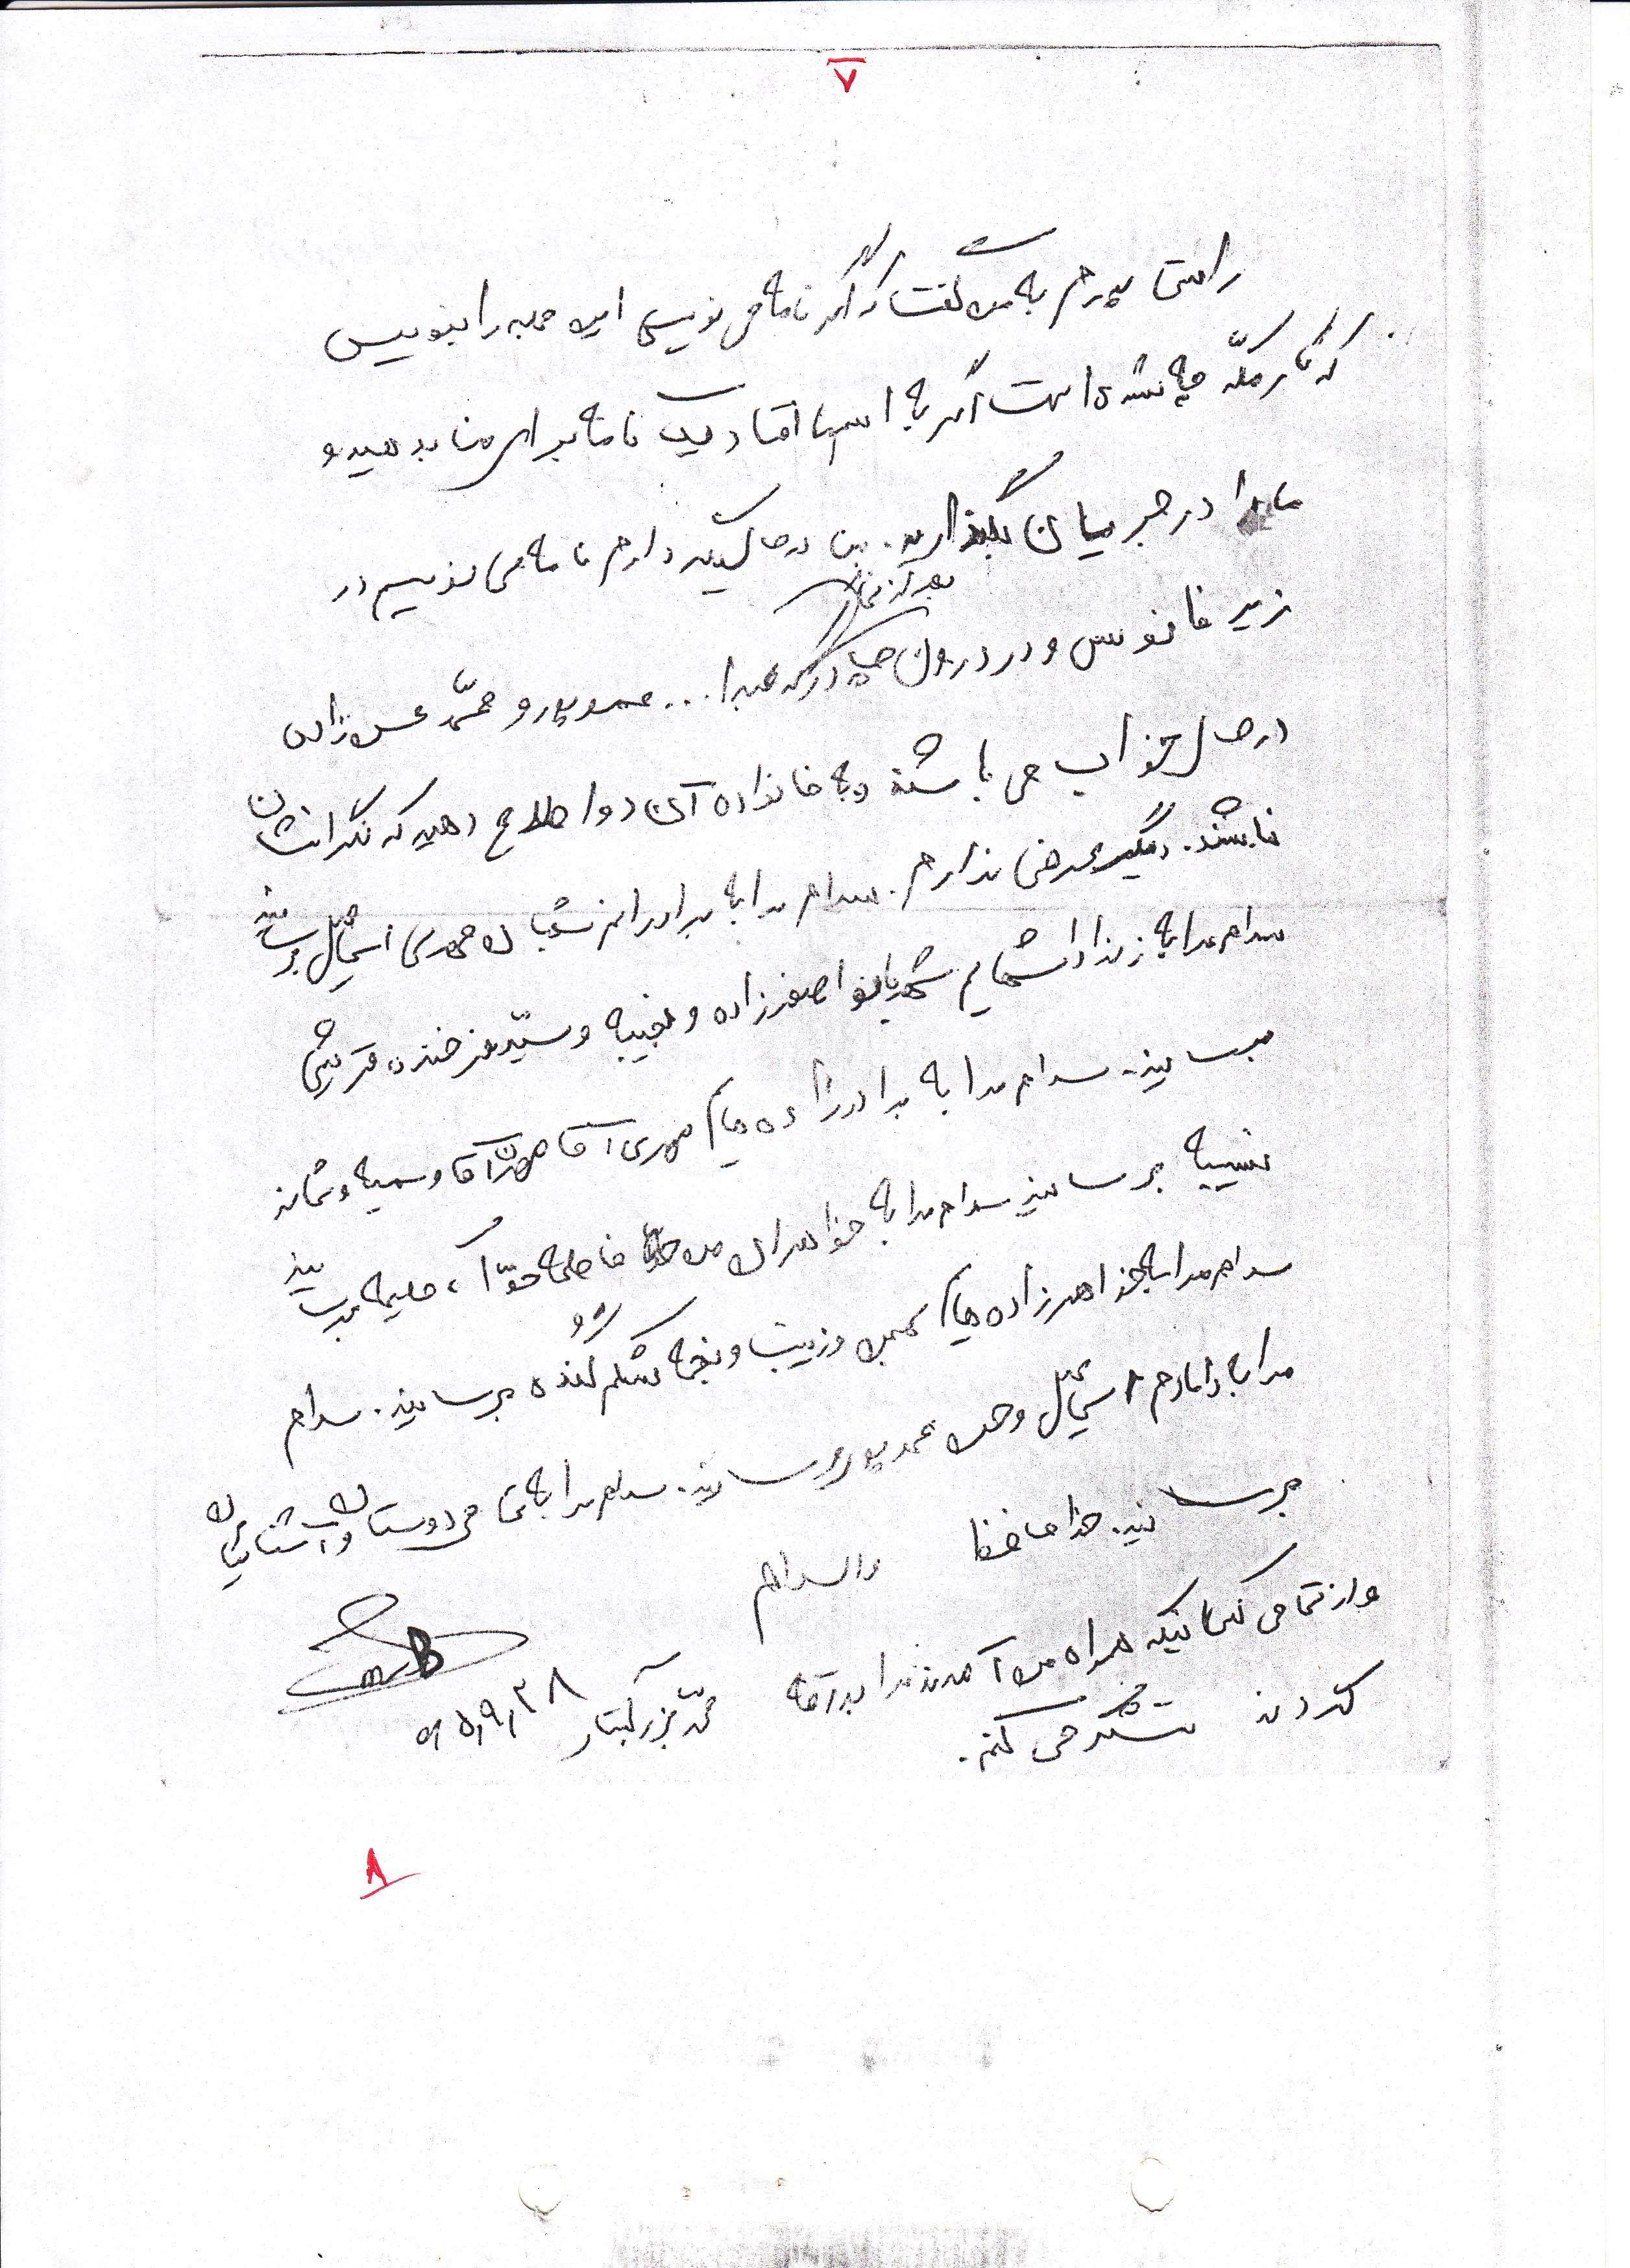 ۷
راستی پدرم به من گفت که اگر نامه می نویسی این جمله را بنویس
که کار مکّه چه شده است اگر به اسم ما افتاد یک نامه برای من بدهید و
ما را در جریان بگذارید. من در حالیکه دارم نامه می نویسم در
بعد از نماز
زیر فانوس و در درون چادر که عبدا... محمدپور و محمّد حسن زاده
در حال خواب می باشند و به خانواده آن دو اطلاع دهید که نگرانشان
نباشند. دیگر عرضی ندارم. سلام مرا به برادرانم شعبان مهدی اسمائیل برسانید
سلام مرا به زنداداشهایم شهربانو اصغرزاده و نجیبه و سیّد فرخنده قریشی
برسانید. سلام مرا به برادرزاده هایم مهدی آقا مهران آقا و سمیه و سمانه
نسیبه برسانید سلام مرا به خواهران من فاطمه حوّا، حلیمه برسانید
سلام مرا به خواهرزاده هایم و زینب و نجمه شکم گنده برسانید. سلام
مرا به دامادم اسمائیل و حسن محمدپور برسانید. سلام مرا به تمامی دوستان و آشنایان
برسانید. خداحافظ والسلام
و از تمامی کسانیکه همراه من آمدند مرا بدرقه
کردند تشکر می کنم.
محمّد برزگر
۶۵,۹,۲۸
۸